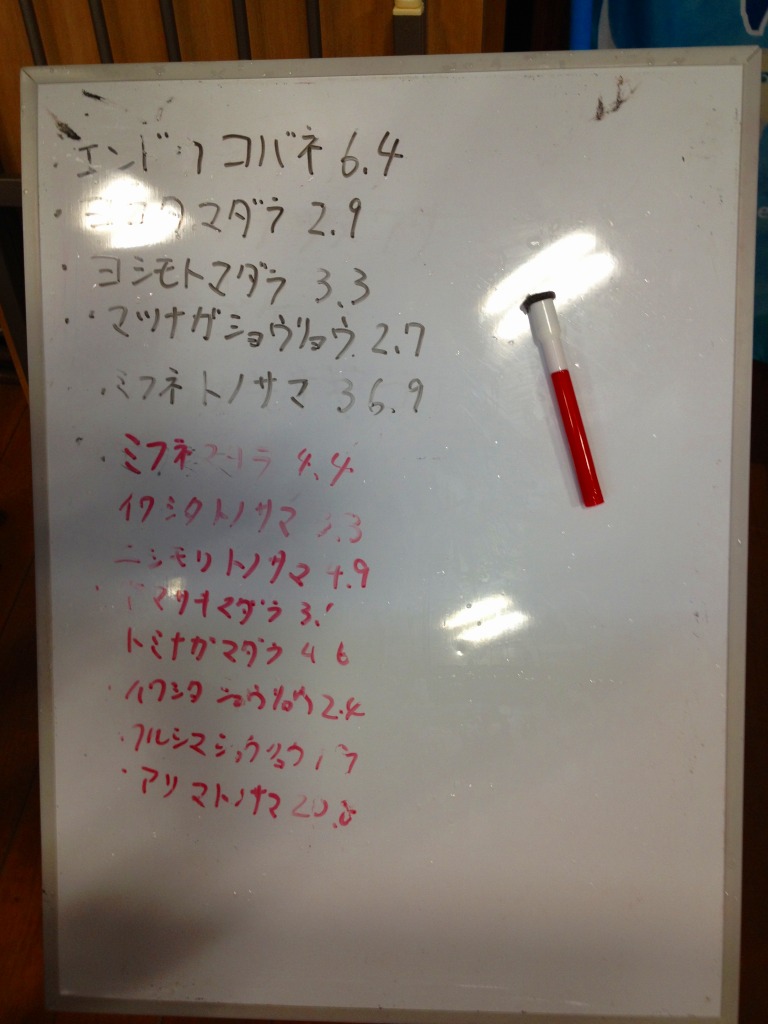 ・エンドウコバネ 6.4
マダラ 2.9
・ヨシモトマダラ 3.3
・マツナガショウリョウ 2.7
・ミフネトノサマ 36.9
・ミフネマダラ 4.4
イワシタトノサマ
ニシモリトノサマ 4.9
トミナガマダラ 4 6
・イワシタショウリョウ 2.4
・フルシマショウリョウ
・アリマトノサマ